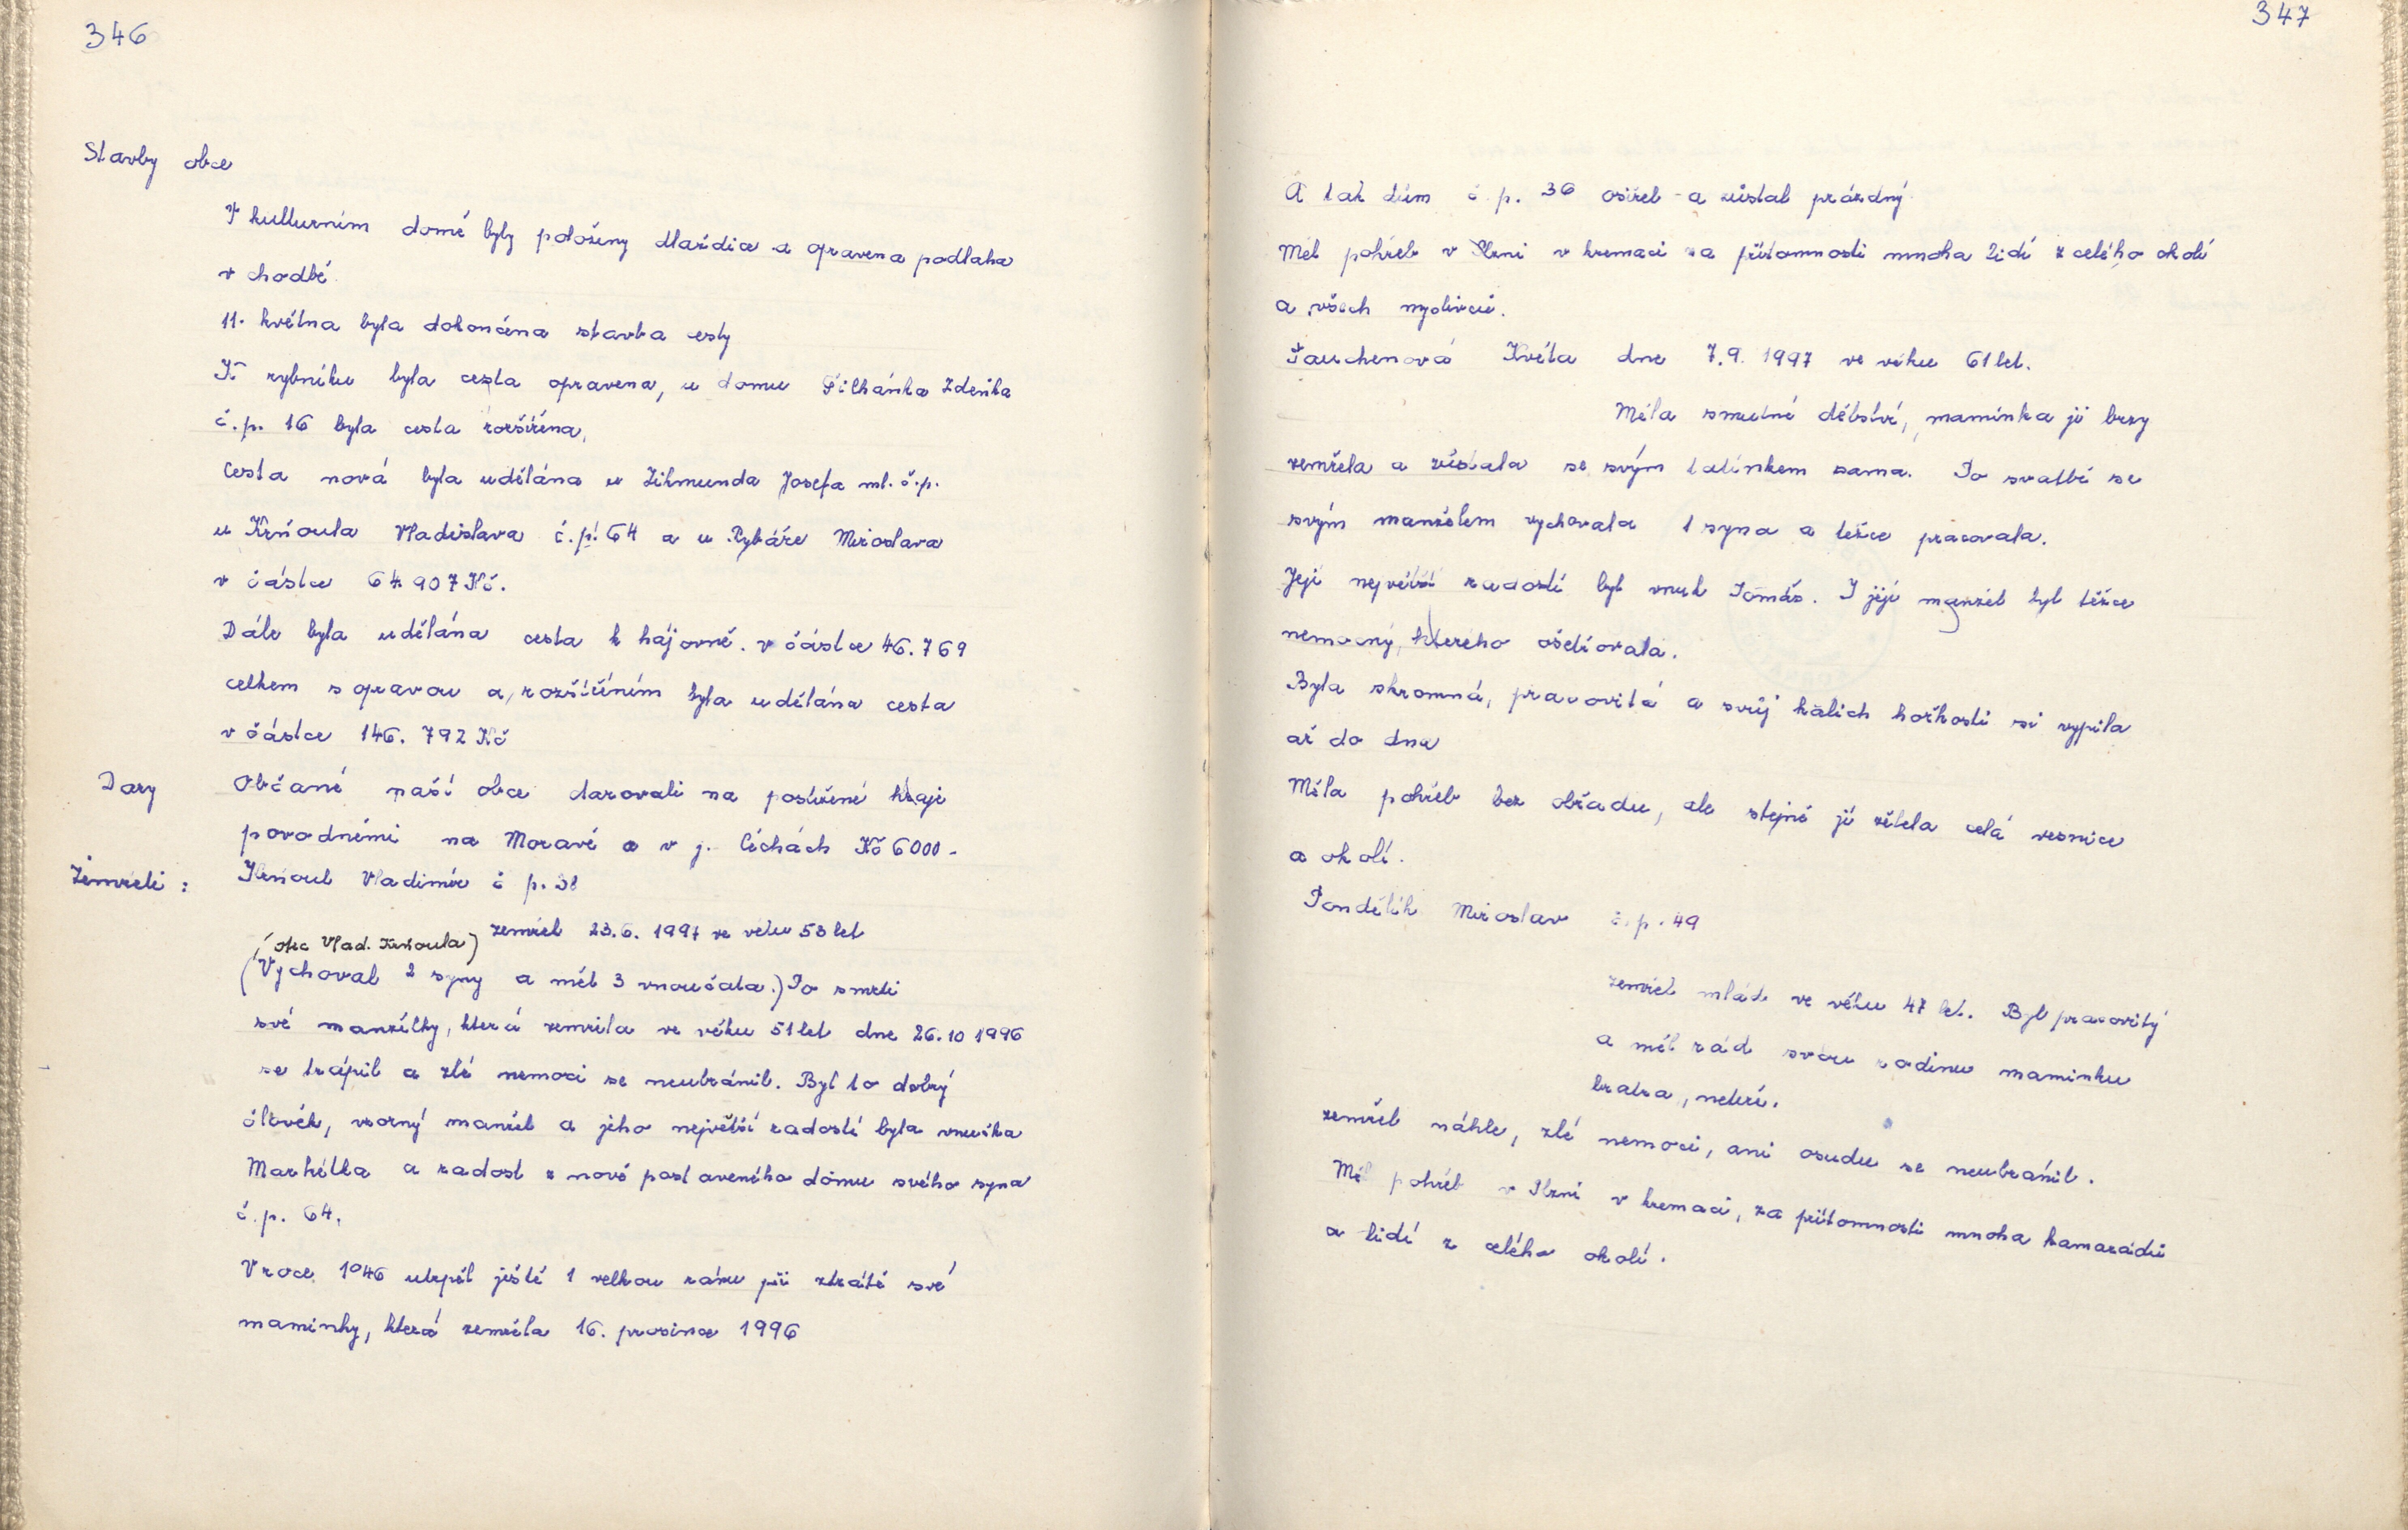 346
Stavby obce
V kulturním domě byly položeny dlaždice a opravena podlaha
v chodbě.
11. května byla dokončena stavba cesty
K rybníku byla cesta opravena, u domu Zdeňka
č.p. 16 byla cesta rozšířena,
Cesta nová byla udělána u Zikmunda Josefa ml. č.p.
u Krňoula Vladislava č.p. 64 a u Rybáře Miroslava
v částce 64.907 Kč.
Dále byla udělána cesta k hájovně. v částce 46.769
celkem s opravou a, rozšířením byla udělána cesta
v částce 146. 792 Kč
Dary
Občané naší obce darovali na postižené kraje
povodněmi na Moravě a v j. Čéchách Kč 6000-
Zemřeli :
Krňoul Vladimír č p. 38
zemřel 23.6. 1997 ve věku 53 let
(otec Vlad. Krňoula)
(Vychoval 2 syny a měl 3 vnoučata.) Po smrti
své manželky, která zemřela ve věku 51 let dne 26.10 1996
se trápil a zlé nemoci se neubránil. Byl to dobrý
člověk, vzorný manžel a jeho největší radostí byla vnučka
Markétka a radost z nově postaveného domu svého syna
č.p. 64.
V roce 1946 utrpěl ještě 1 velkou ránu při ztrátě své
maminky, která zemřela 16. prosince 1996
347
A tak dům č.p. 36 osiřel a zůstal prázdný
Měl pohřeb v Plzni v kremaci za přítomnosti mnoha lidí z celého okolí
a všech myslivců.
Tauchenová Květa dne 7.9. 1997 ve věku 61 let.
Měla smutné dětství, maminka jí brzy
zemřela a zůstala se svým tatínkem sama. Po svatbě se
svým manželem vychovala 1 syna a těžce pracovala.
Její největší radostí byl vnuk Tomáš. I její manžel byl těžce
nemocný, kterého ošetřovala.
Byla skromná, pracovitá a svůj kalich hořkosti si vypila
až do dna
Měla pohřeb bez obřadu, ale stejně jí želela celá vesnice
a okolí.
Pondělík Miroslav č.p. 49
zemřel mlád ve věku 47 let. Byl pracovitý
a měl rád svou rodinu maminku
bratra, neteře.
zemřel náhle, zlé nemoci, ani osudu se neubránil.
Měl pohřeb v Plzni v kremaci, za přítomnosti mnoha kamarádů
a lidí z celého okolí.